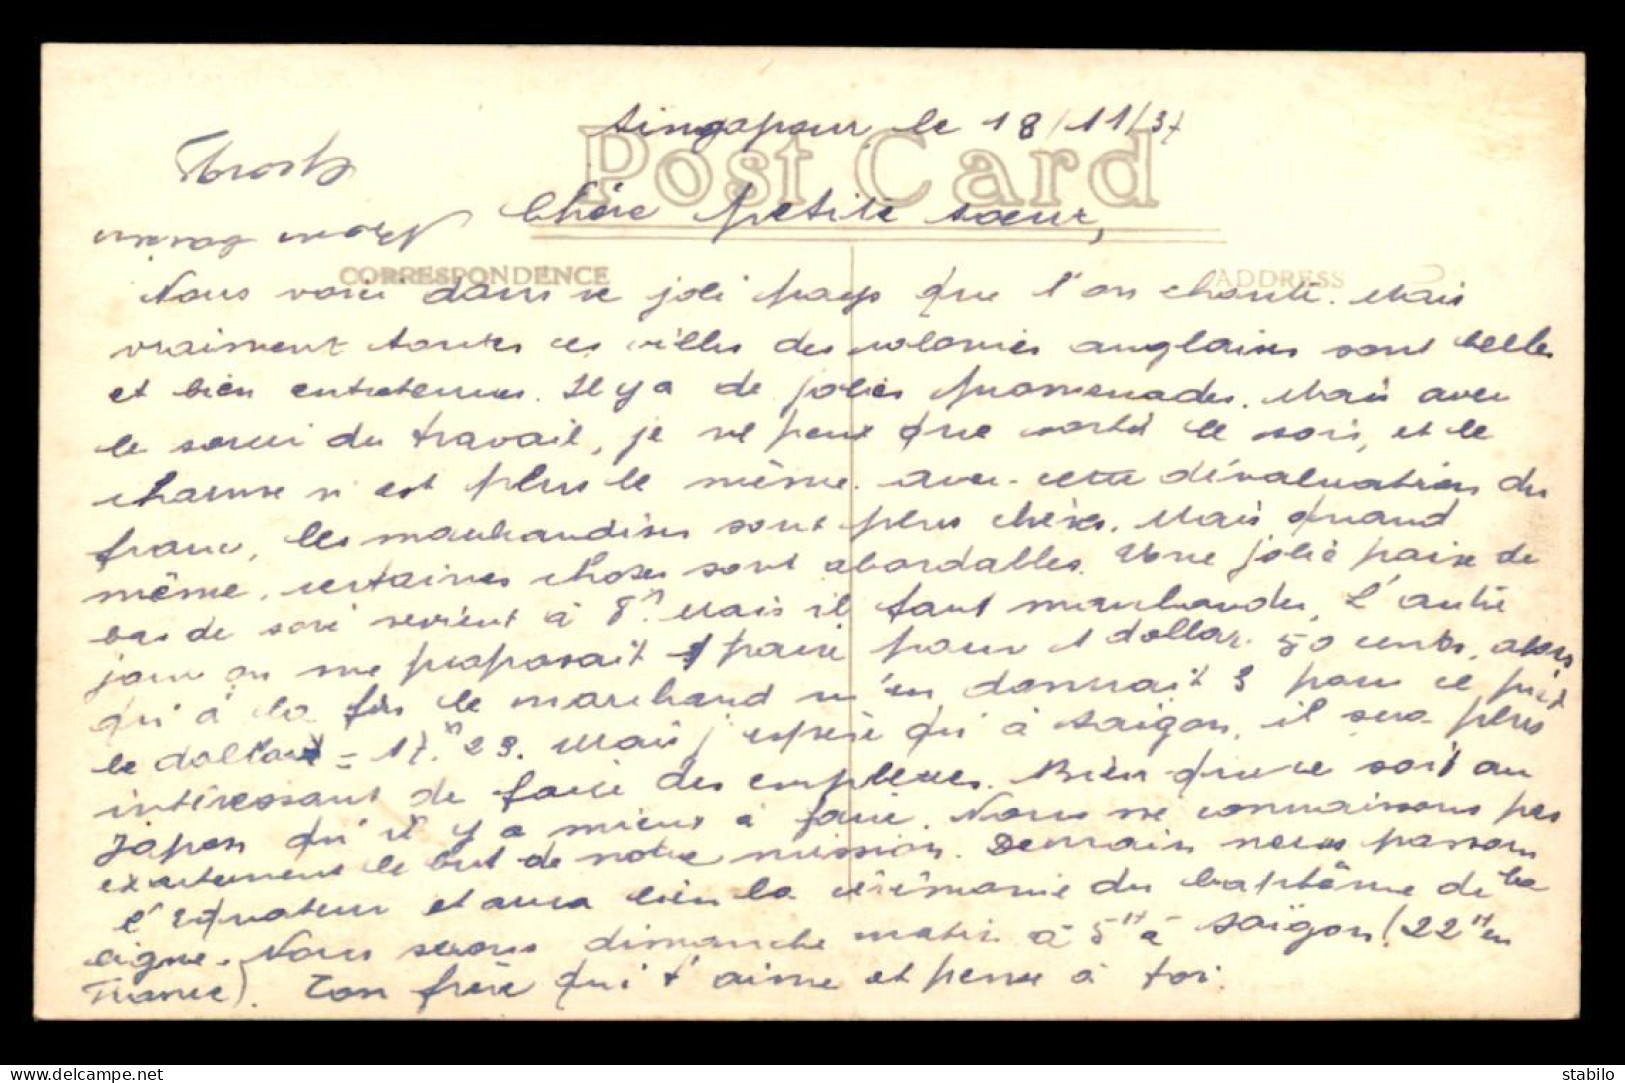 Singapour, le 18/11/37
Post Card
Chère petite soeur,
CORRESPONDENCE
ADDRESS
Nous voici dans ce joli pays que l'on chante. Mais
vraiment toutes ces villes des colonies anglaises sont belles
et bien entretenues. Il y a de jolies promenades. Mais avec
le souci du travail, je ne peux que sortir le soir, et le
charme n'est plus le même. avec cette dévaluation du
franc, les marchandises sont plus chères. Mais quand
même, certaines choses sont abordables. Une jolie paire de
bas de soie revient à 8 frs. Mais il faut marchander, L'autre
jour on me proposait 1 paire pour 1 dollar. 50 cents, alors
qu'à la fin le marchand m'en donnait 3 pour ce prix
le dollar = 17. 23. Mais j'espère qu'à Saïgon, il sera plus
intéressant de faire des emplettes. Bien que ce soit au
Japon qu'il y a mieux à faire. Nous ne connaissons pas
exactement le but de notre mission. Demain nous passons
l'Equateur et aura lieu la cérémonie du baptême de la
ligne. Nous serons dimanche matin à 5H à Saïgon (22H en
France). Ton frère qui t'aime et pense à toi.
www.delcampe.net
stabilo